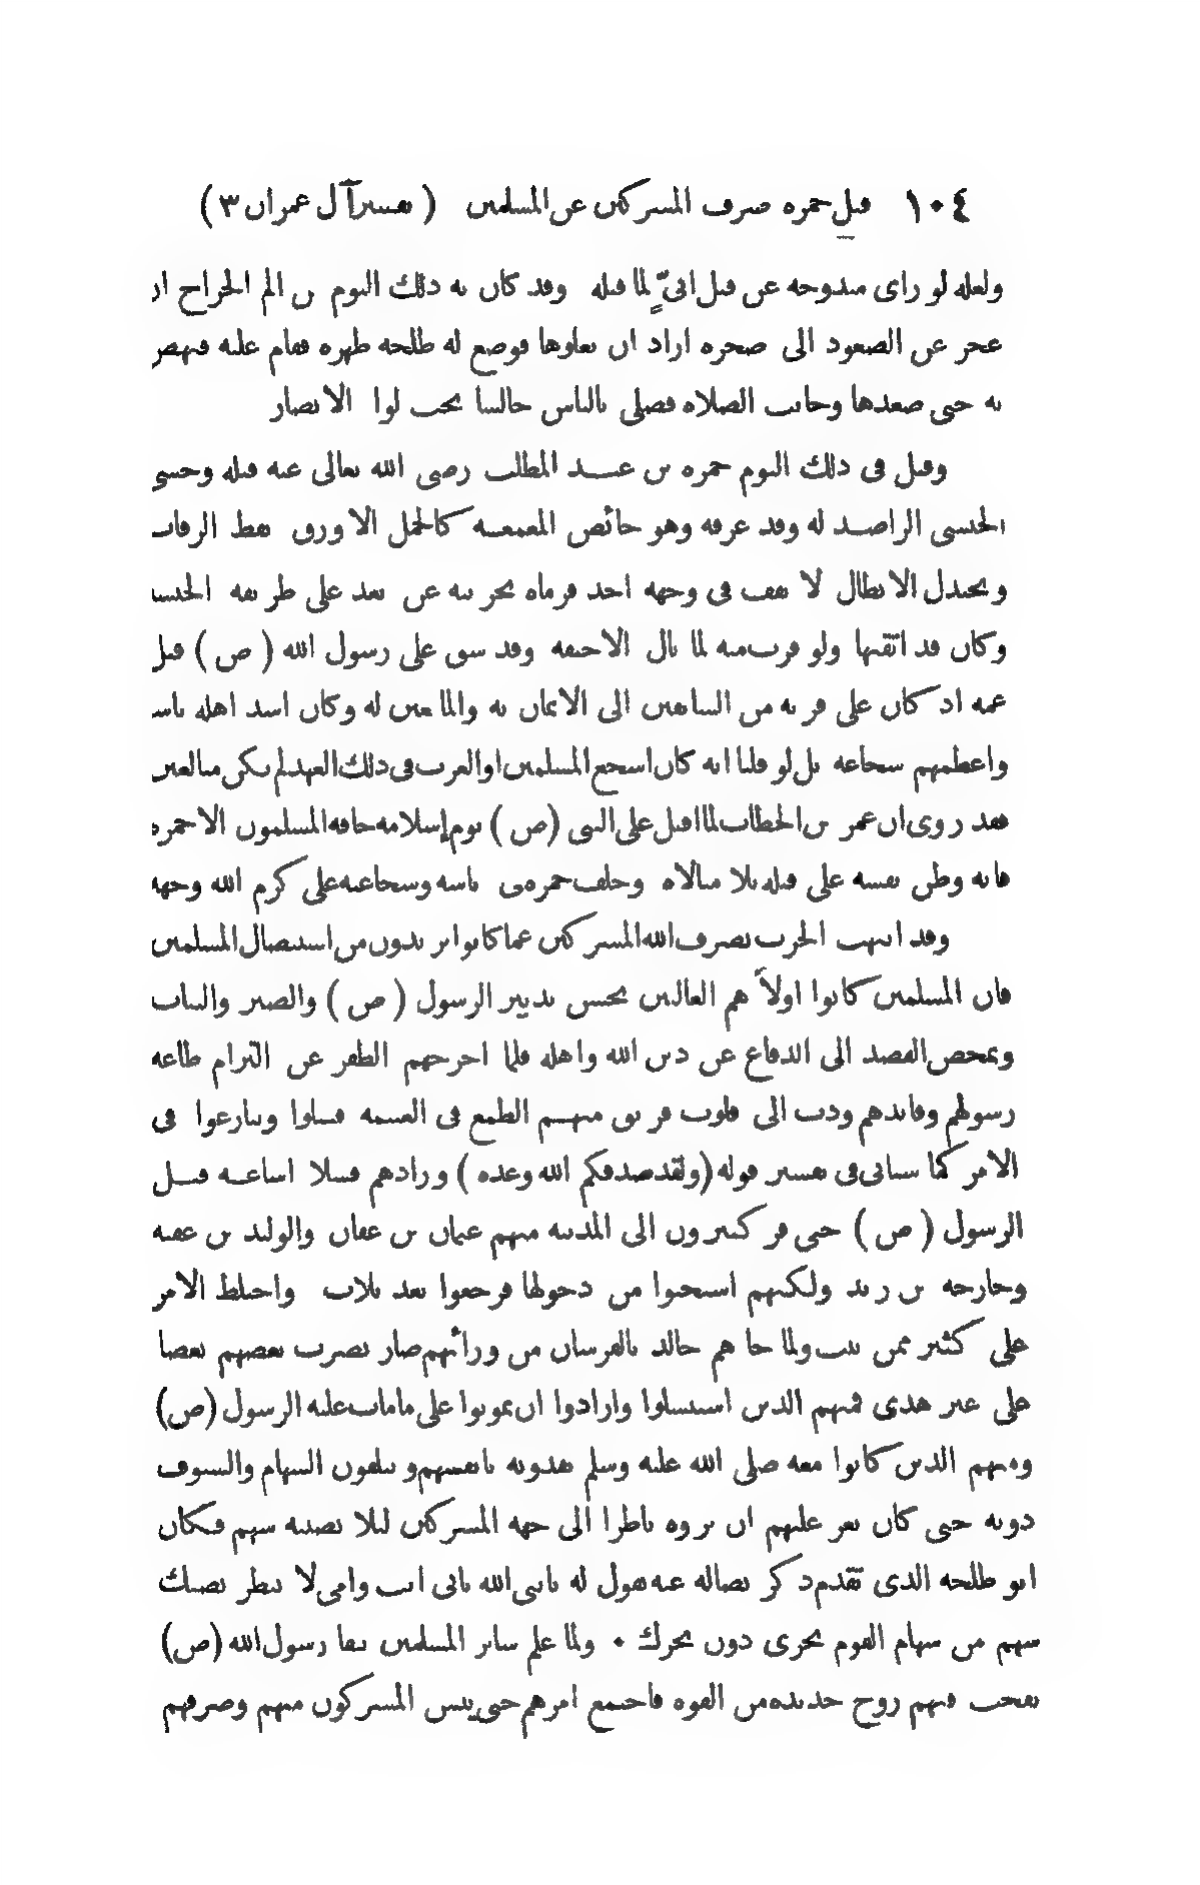 ١٠٤ قتل حمزة صرف المشركين عن المسلمين ( تفسير آل عمران ٣ )
ولعله لو رأى مندوحة عن قتل أبيّ لما قتله وقد كان به ذلك اليوم من ألم الجراح أن
عجز عن الصعود إلى صخرة أراد أن يعلوها فوضع له طلحة ظهره فقام عليه فنهض
به حتى صعدها وحانت الصلاة فصلى بالناس جالسا تحت لواء الأنصار
وقتل في ذلك اليوم حمزة بن عبد المطلب رضي الله تعالى عنه قتله وحشي
الحبشي الراصد له وقد عرفه وهو خائض المعمعة كالجمل الأورق يقط الرقاب
ويجندل الأبطال لا يقف في وجهه أحد فرماه بحربته عن بعد على طريقة الحبشة
وكان قد أتقنها ولو قرب منه لما نال إلا حتفه وقد شق على رسول الله ( ص ) قتل
عمه إذ كان على قربه من السابقين إلى الإيمان به والمانعين له وكان أشد أهله بأسا
وأعظمهم شجاعة بل لو قلنا انه كان أشجع المسلمين أو العرب في ذلك العهد لم نكن مبالغين
فقد روي ان عمر بن الخطاب لما أقبل على النبي ( ص ) يوم إسلامه خافه المسلمون الا حمزة
فانه وطن نفسه على قتله بلا مبالاة وخلف حمزة في بأسه وشجاعته علي كرم الله وجهه
وقد انتهت الحرب بصرف الله المشركين عما كانوا يريدون من استئصال المسلمين
فان المسلمين كانوا أولاً هم الغالبين بحسن تدبير الرسول ( ص ) والصبر والثبات
وتمحص القصد إلى الدفاع عن دين الله وأهله فلما أخرجهم الظفر عن التزام طاعة
رسولهم وقائدهم ودب إلى قلوب فريق منهم الطمع في الغنيمة فشلوا وتنازعوا في
الأمر كما سيأتي في تفسير قوله ( ولقد صدقكم الله وعده ) وزادهم فشلا إشاعة قتل
الرسول ( ص ) حتى فر كثيرون إلى المدينة منهم عثمان بن عفان والوليد بن عقبة
وخارجة بن زيد ولكنهم استحيوا من دخولها فرجعوا بعد ثلاث واختلط الأمر
على كثير ممن ثبت ولما جاءهم خالد بالفرسان من ورائهم صار يضرب بعضهم بعضا
على غير هدى فمنهم الذين استبسلوا وأرادوا أن يموتوا على ما مات عليه الرسول ( ص )
ومنهم الذين كانوا معه صلى الله عليه وسلم يفدونه بأنفسهم ويتلقون السهام والسيوف
دونه حتى كان يعز عليهم أن يروه ناظرا إلى جهة المشركين لئلا يصيبه سهم فكان
أبو طلحة الذي تقدم ذكر نضاله عنه يقول له يا نبي الله بأبي أنت وأمي لا تنظر يصبك
سهم من سهام القوم نحري دون نحرك • ولما علم سائر المسلمين ببقاء رسول الله ( ص )
نفخت فيهم روح جديدة من القوة فاجتمع أمرهم حتى يئس المشركون منهم وصرفهم